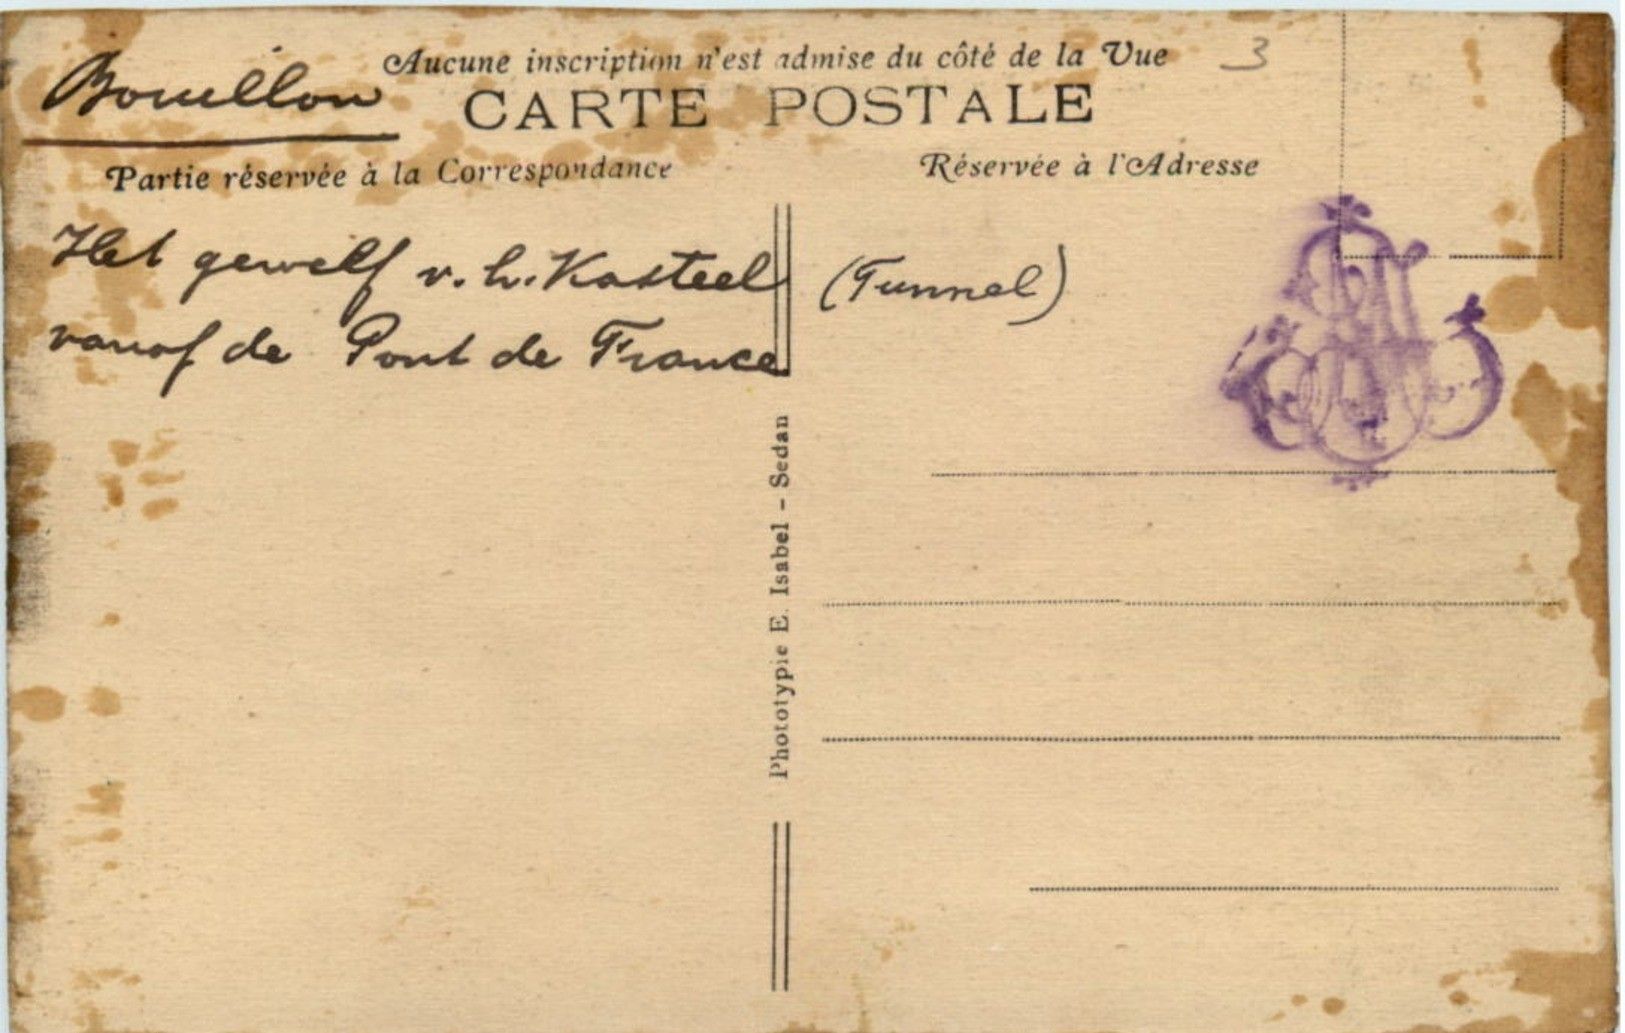 Bouillon
Aucune inscription n'est admise du côté de la Vue
3
CARTE POSTALE
Partie réservée à la Correspondance
Réservée à l'Adresse
Het gewelf v. h. Kasteel (Tunnel)
vanaf de Pont de France
Phototypie E. Isabel - Sedan